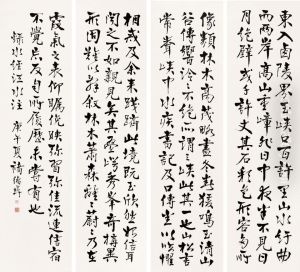 東入西陵界至峽口百許里山水紆曲
而兩岸高山重嶂非日中夜半不見日
月絕壁或千許丈其石彩色形容多所
像類林木高茂略盡冬春猿鳴至清山
谷傳響泠泠不絕所謂三峽此其一也山松言
常聞峽中水疾書記及口傳悉以臨懼
相戒及余來踐躋此境既至欣然始信耳
聞之不如親見矣其疊崿秀峰奇構異
形固難以辭敘林木蕭森離離蔚蔚乃在
霞氣之表仰矚俯映彌習彌佳流連信宿
不覺忘返目所履歷未嘗有也
水經江水注 庚午夏